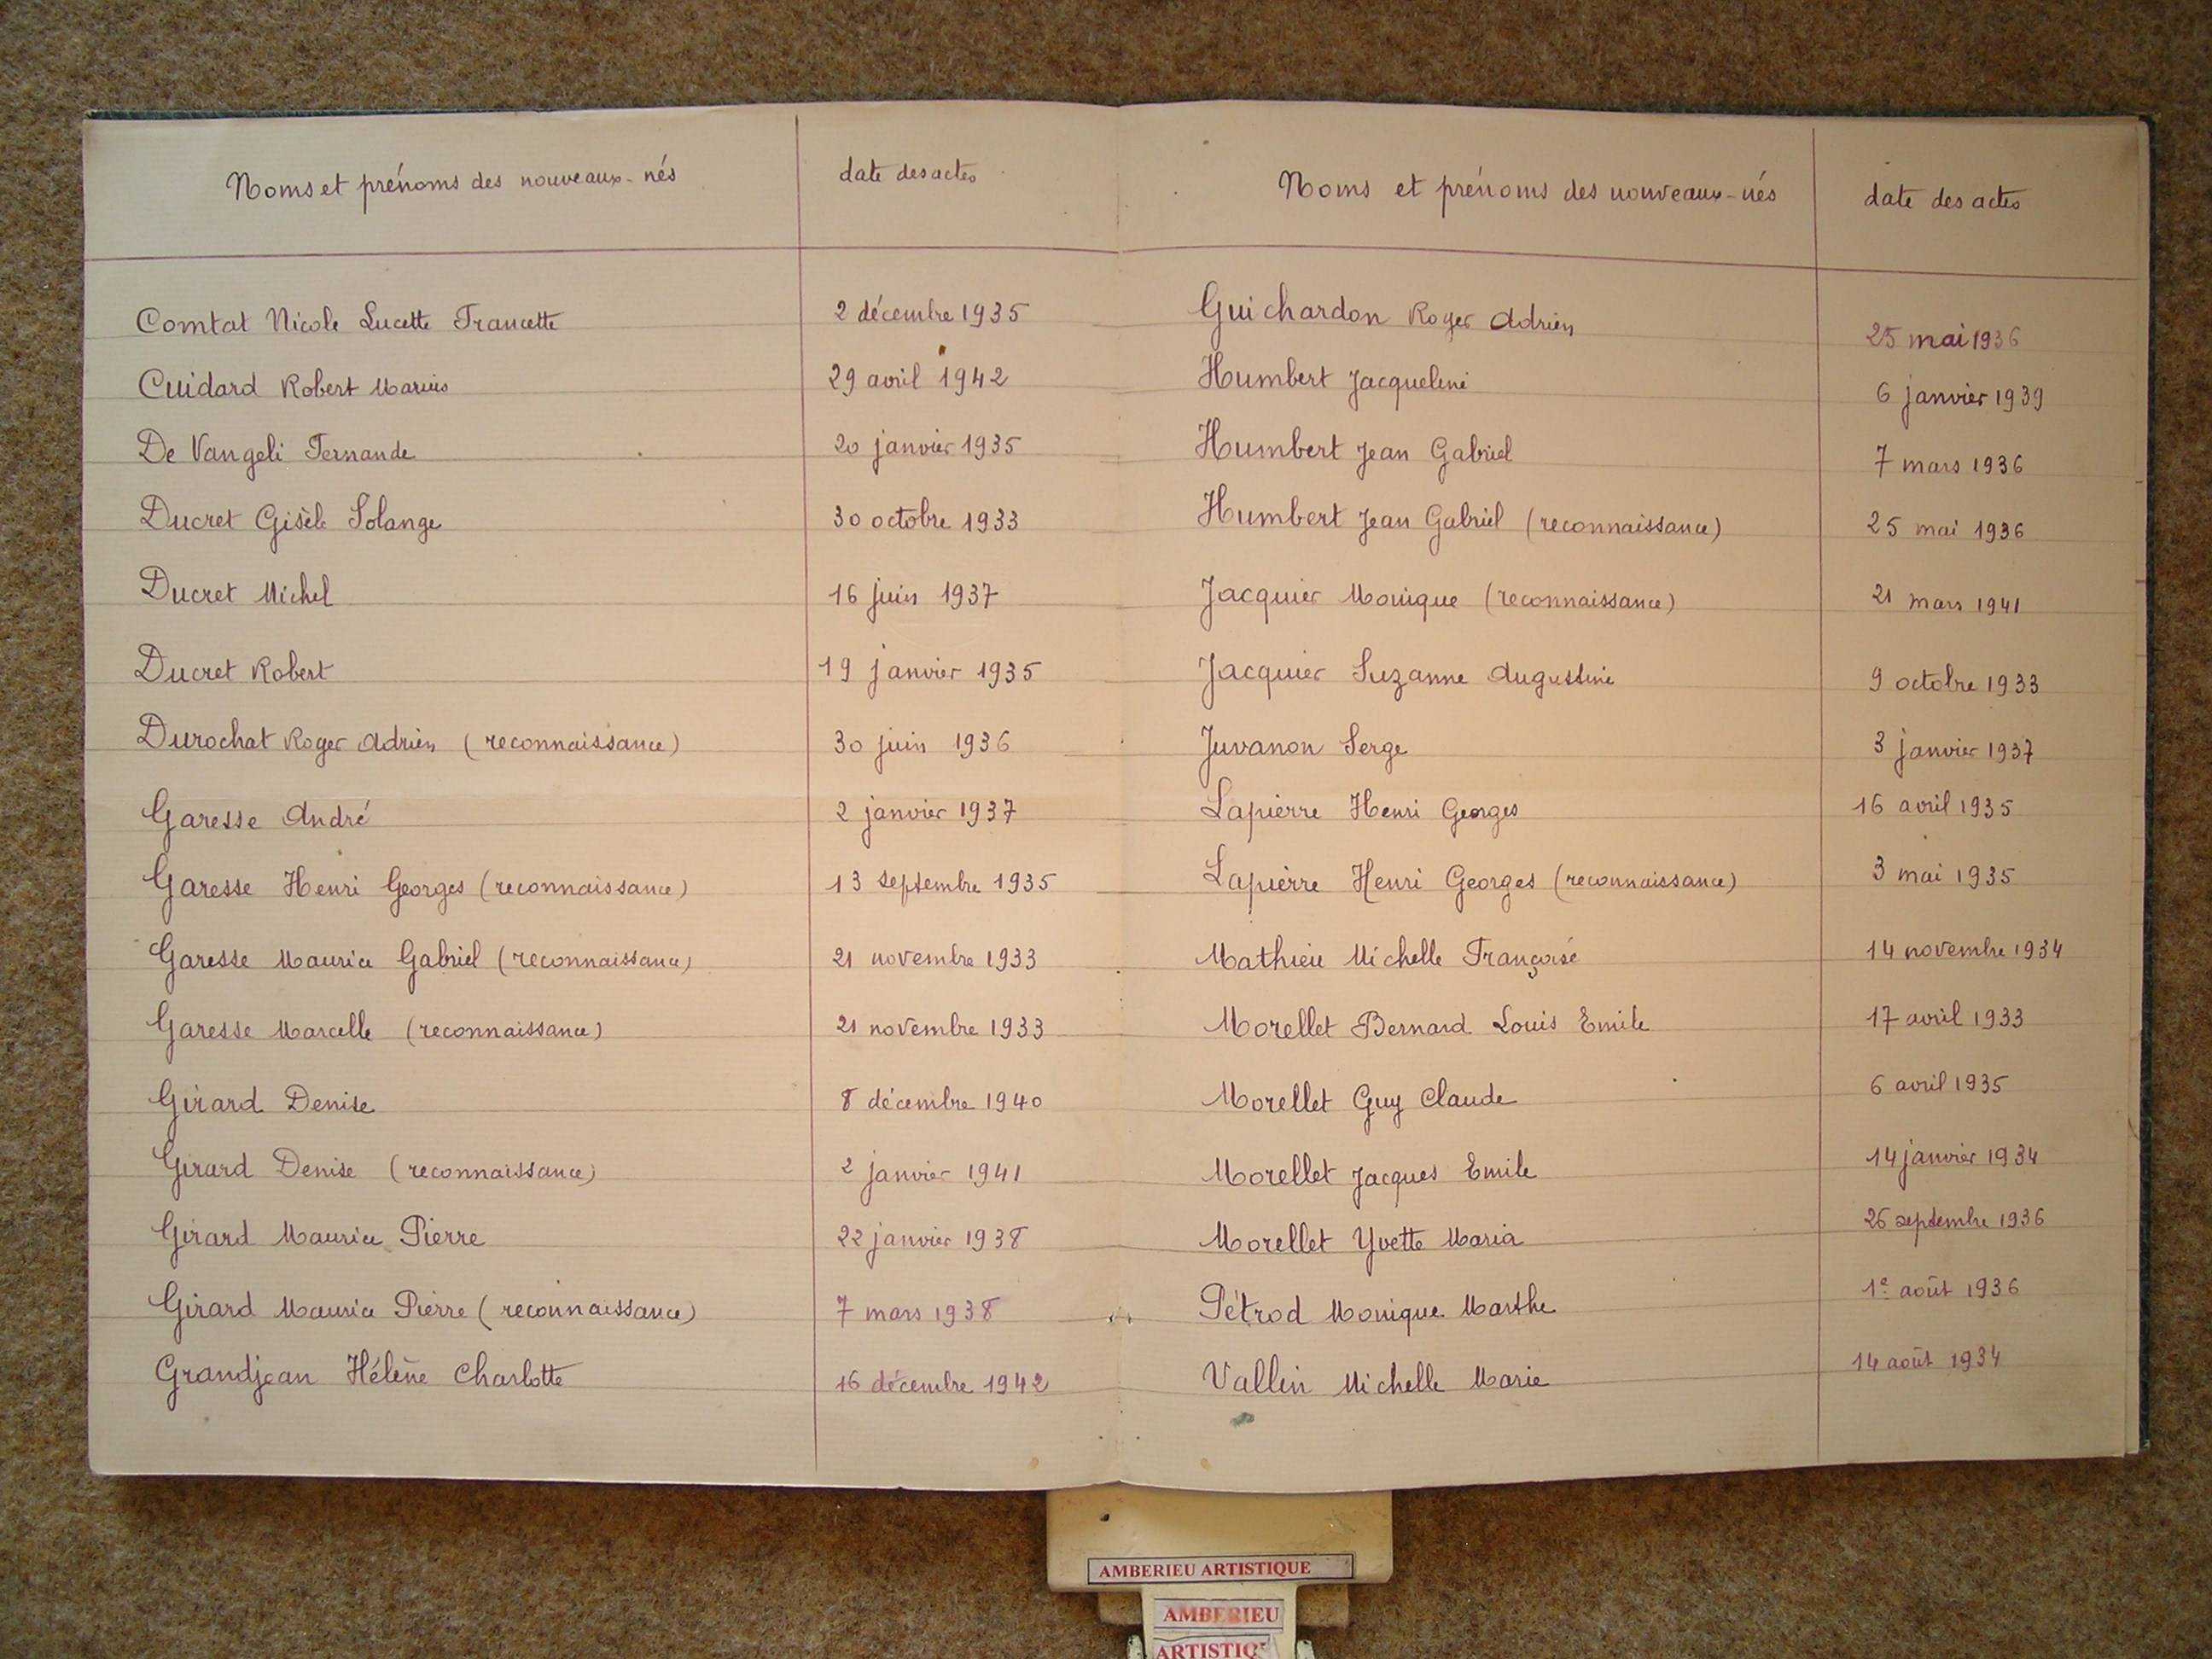 Noms et prénoms des nouveaux-nés date des actes
Comtat Nicole Lucette Francette 2 décembre 1935
Cuidard Robert Marius 29 avril 1942
De Vangeli Fernande 20 janvier 1935
Ducret Gisèle Solange 30 octobre 1933
Ducret Michel 16 juin 1937
Ducret Robert 19 janvier 1935
Durochat Roger Adrien (reconnaissance) 30 juin 1936
Garesse André 2 janvier 1937
Garesse Henri Georges (reconnaissance) 13 septembre 1935
Garesse Maurice Gabriel (reconnaissance) 21 novembre 1933
Garesse Marcelle (reconnaissance) 21 novembre 1933
Girard Denise 8 décembre 1940
Girard Denise (reconnaissance) 2 janvier 1941
Girard Maurice Pierre 22 janvier 1938
Girard Maurice Pierre (reconnaissance) 7 mars 1938
Grandjean Hélène Charlotte 16 décembre 1942
Noms et prénoms des nouveaux-nés date des actes
Guichardon Roger Adrien 25 mai 1936
Humbert Jacqueline 6 janvier 1939
Humbert Jean Gabriel 7 mars 1936
Humbert Jean Gabriel (reconnaissance) 25 mai 1936
Jacquier Monique (reconnaissance) 21 mars 1941
Jacquier Suzanne Augustine 9 octobre 1933
Juvanon Serge 3 janvier 1937
Lapierre Henri Georges 16 avril 1935
Lapierre Henri Georges (reconnaissance) 3 mai 1935
Mathieu Michelle Françoise 14 novembre 1934
Morellet Bernard Louis Emile 17 avril 1933
Morellet Guy Claude 6 avril 1935
Morellet Jacques Emile 14 janvier 1934
Morellet Yvette Maria 26 septembre 1936
Pétrod Monique Marthe 1e août 1936
Vallin Michelle Marie 14 août 1934
AMBERIEU ARTISTIQUE
AMBERIEU
ARTISTIQ